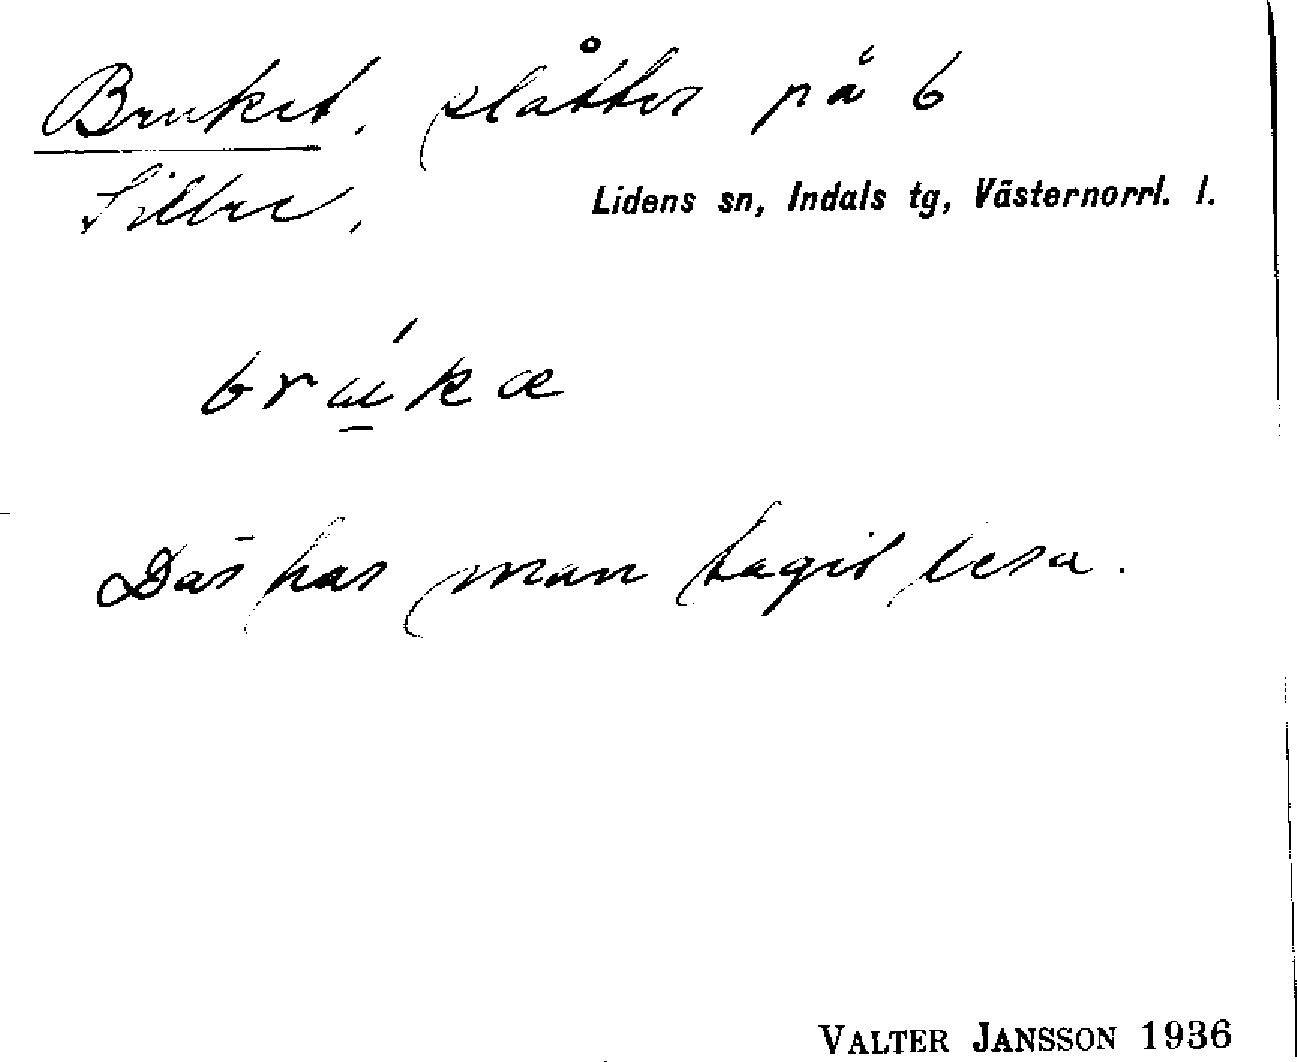 Bruket, slåtter på 6
Sillre,
Lidens sn, Indals tg, Västernorrl. l.
brúkæ
Där har man tagit lera.
VALTER JANSSON 1936